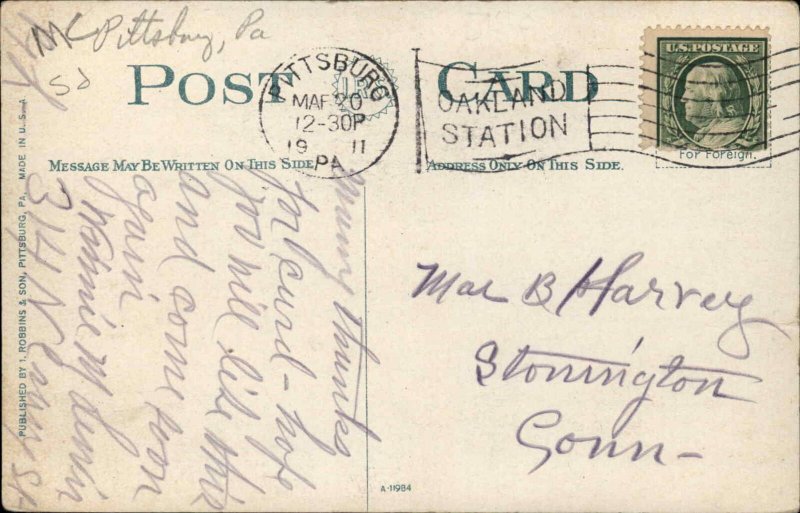 Pittsburg, Pa
POST CARD
PITTSBURG
MAR 20
12-30P
19 11
PA.
OAKLAND
STATION
U.S. POSTAGE
For Foreign.
MESSAGE MAY BE WRITTEN ON THIS SIDE
ADDRESS ONLY ON THIS SIDE.
PUBLISHED BY I. ROBBINS & SON, PITTSBURG, PA. MADE IN U.S.A
Many thanks
for card - hope
you will like this
and come soon
again
314 N
St
Mae B Harvey
Stonington
Conn-
A-11984